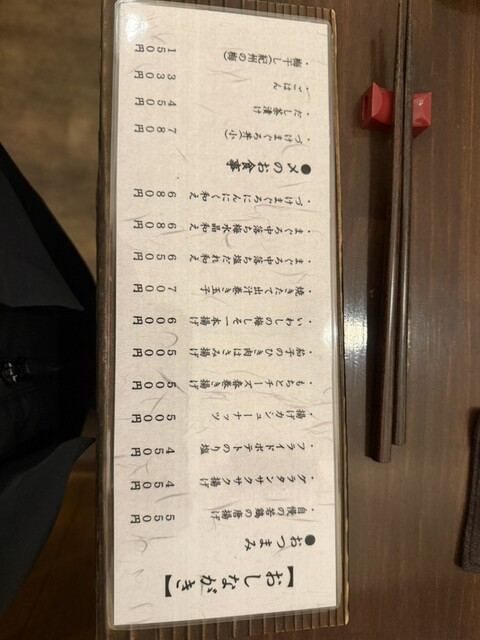 【おしながき】
●おつまみ
・自慢の若鶏の唐揚げ 550円
・グラタンサクサク揚げ 450円
・フライドポテトのり塩 450円
・揚げカシューナッツ 500円
・もちとチーズ春巻き揚げ 500円
・茄子のひき肉はさみ揚げ 500円
・いわしの梅しそ一本揚げ 600円
・焼きたて出汁巻き玉子 700円
・まぐろ中落ち塩だれ和え 650円
・まぐろ中落ち梅水晶和え 680円
・づけまぐろにんにく和え 680円
●〆のお食事
・づけまぐろ丼(小) 780円
・だし茶漬け 450円
・ごはん 330円
・梅干し(紀州の梅) 150円